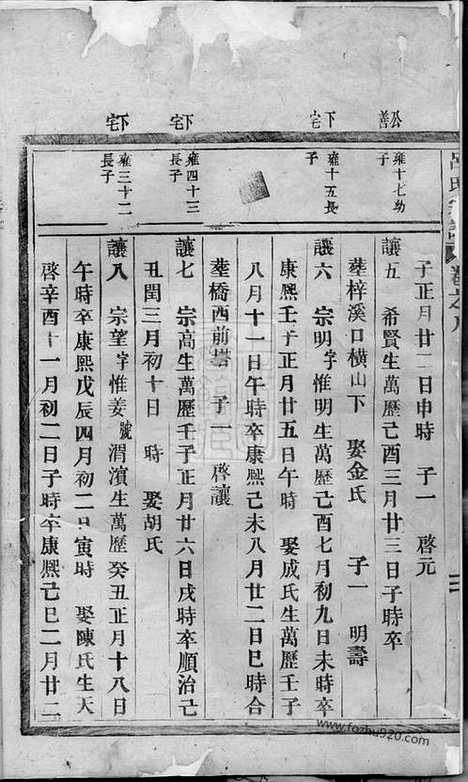 呂氏宗譜 卷之八
公善
下宅
下宅
下宅
雍十七幼子
雍十五長子
雍四十三長子
雍三十二長子
子正月廿二日申時 子一 啓元
讓五 希賢生萬歷己酉三月廿三日子時卒
塟梓溪口橫山下 娶金氏 子一 明壽
讓六 宗明字惟明生萬歷己酉七月初九日未時卒
康熙壬子正月廿五日午時 娶成氏生萬歷壬子
八月十一日午時卒康熙己未八月廿二日巳時合
塟橋西前塔 子一 啓讓
讓七 宗高生萬歷壬子正月廿六日戌時卒順治己
丑閏三月初十日 時 娶胡氏
讓八 宗望字惟姜號渭濱生萬歷癸丑正月十八日
午時卒康熙戊辰四月初二日寅時 娶陳氏生天
啓辛酉十一月初二日子時卒康熙己巳二月廿二
www.fozhu920.com